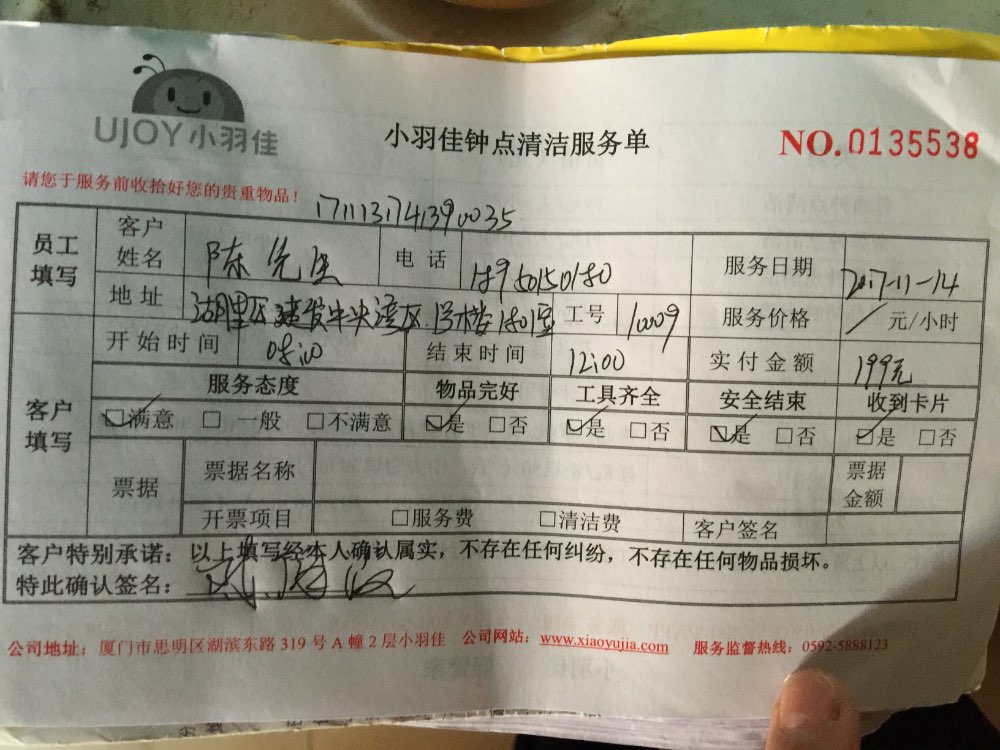 UJOY小羽佳
小羽佳钟点清洁服务单
NO.0135538
请您于服务前收拾好您的贵重物品！
171113741390035
员工填写 客户姓名 陈先生 电话 18950150180 服务日期 2017-11-14
地址 湖里区建发中央湾区 工号 10009 服务价格 / 元/小时
开始时间 08:00 结束时间 12:00 实付金额 199元
客户填写 服务态度 物品完好 工具齐全 安全结束 收到卡片
☑满意 □一般 □不满意 ☑是 □否 ☑是 □否 ☑是 □否 ☑是 □否
票据 票据名称 票据金额
开票项目 □服务费 □清洁费 客户签名
客户特别承诺：以上填写经本人确认属实，不存在任何纠纷，不存在任何物品损坏。
特此确认签名：
公司地址：厦门市思明区湖滨东路 319 号 A 幢 2 层小羽佳 公司网站：www.xiaoyujia.com 服务监督热线：0592-5888123